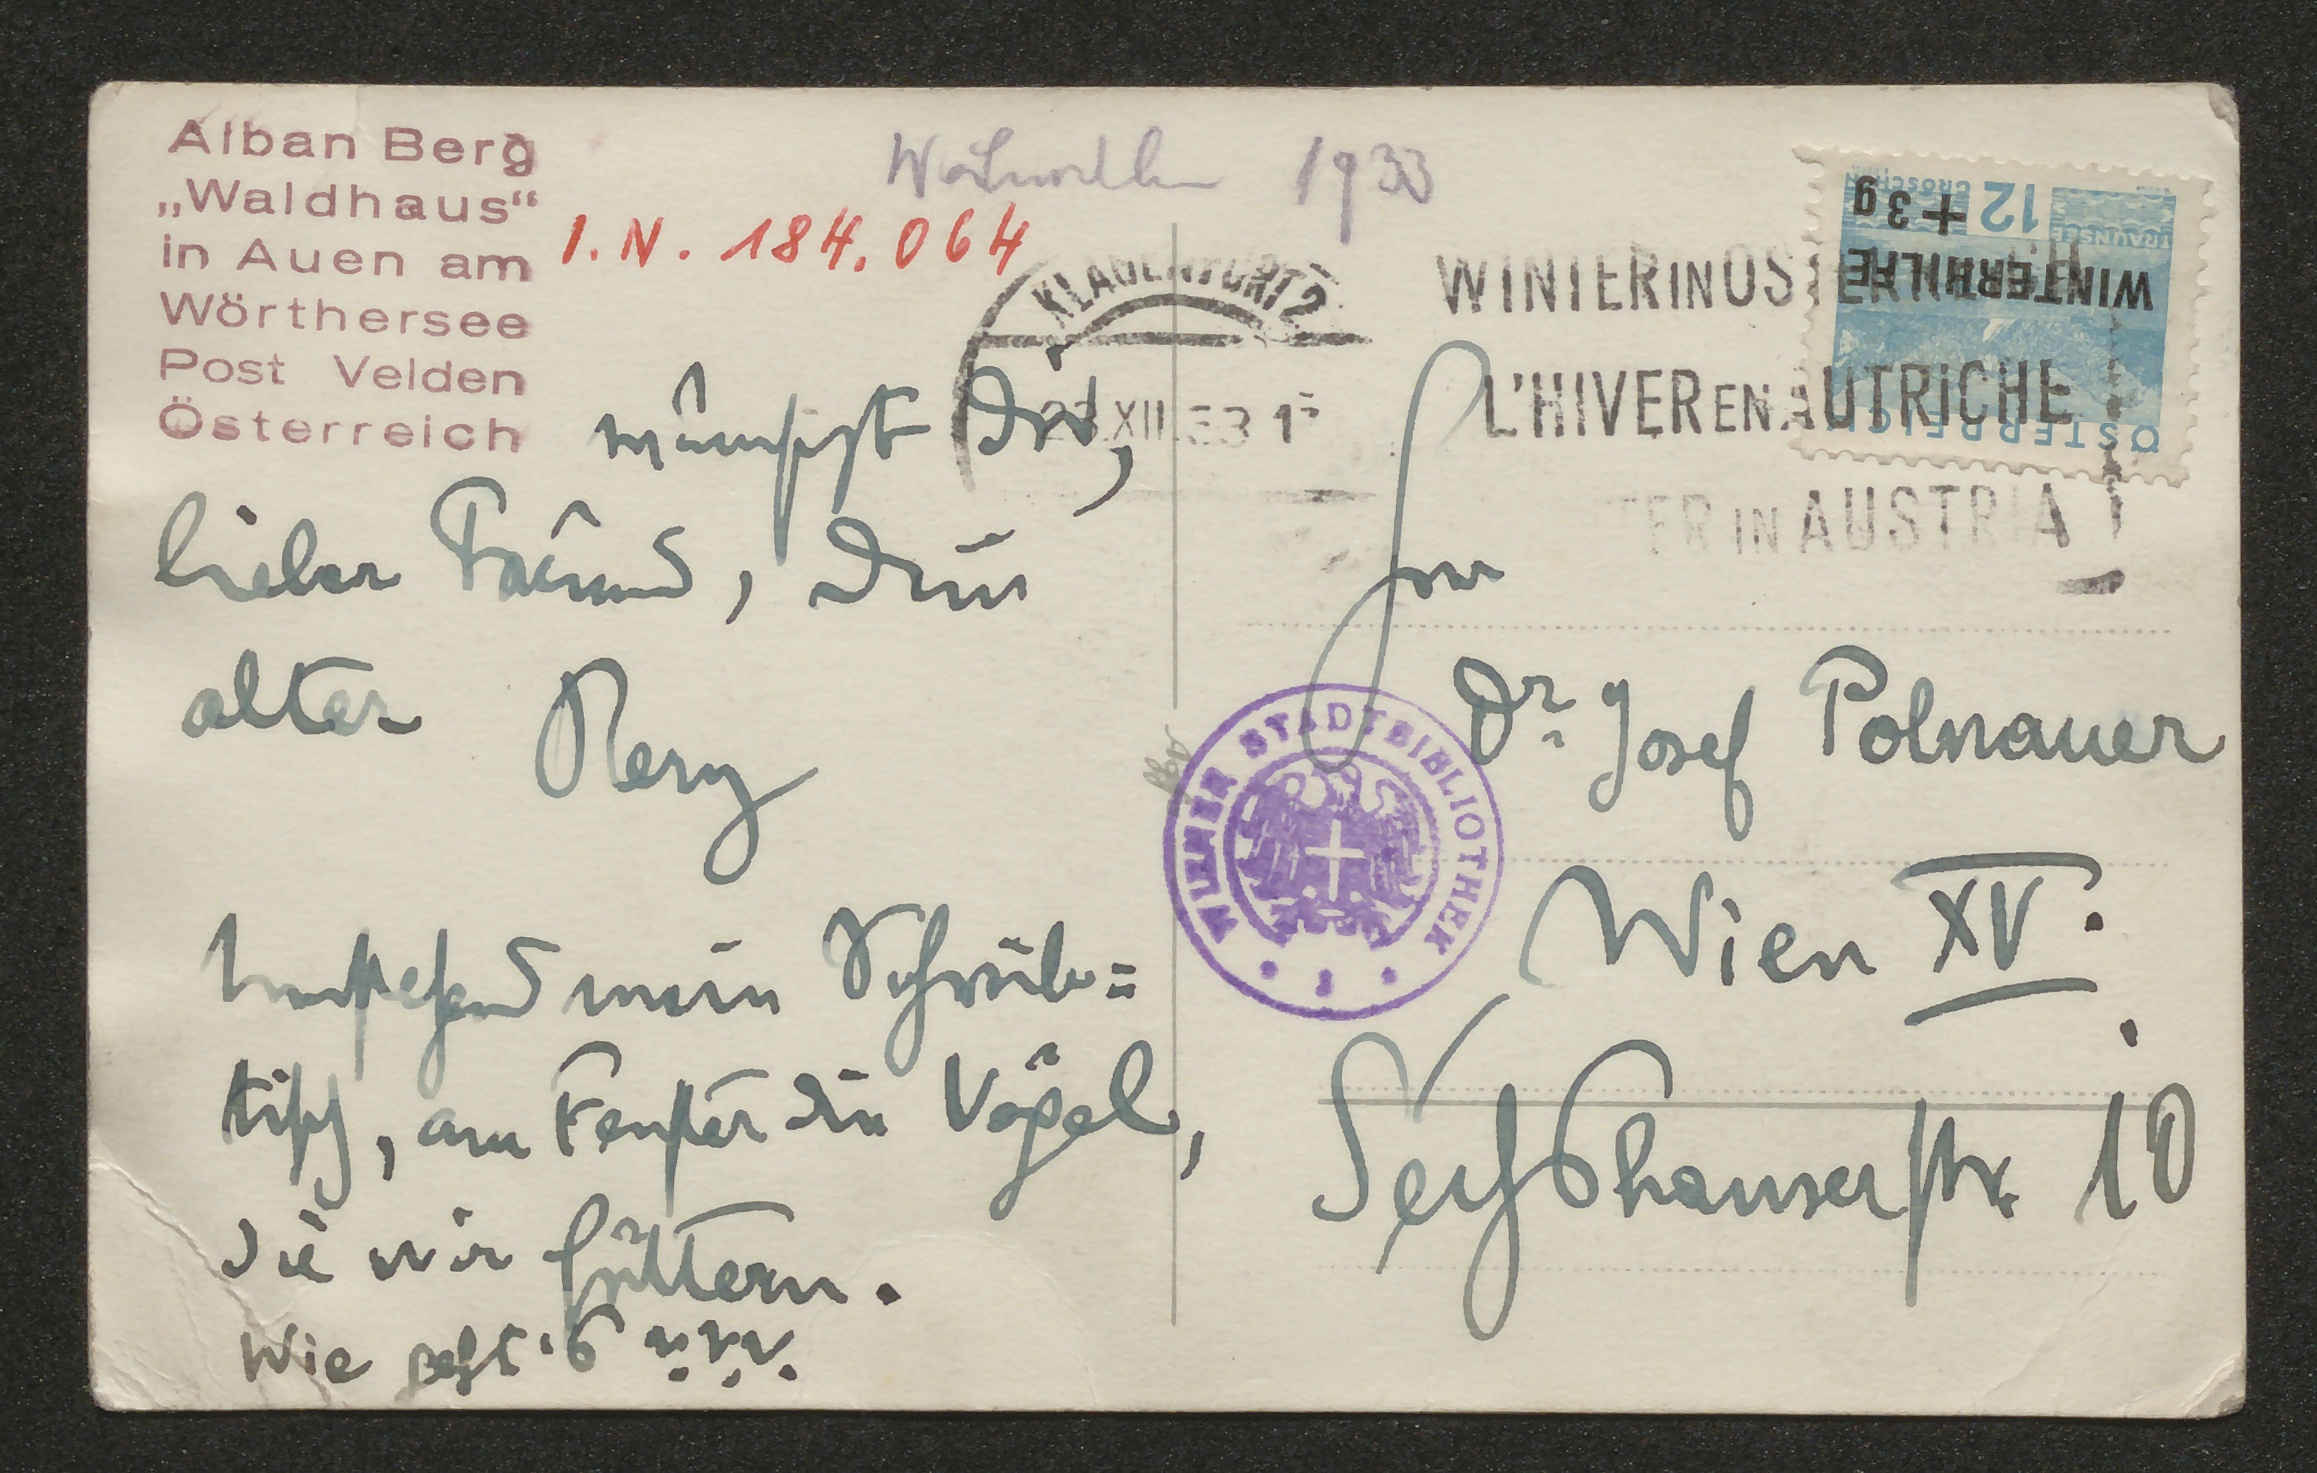 Alban Berg
„Waldhaus“
in Auen am
Wörthersee
Post Velden
Österreich
Weihnachten 1933
I.N. 184.064
KLAGENFURT 2
23.XII.33 1
WINTER IN ÖSTERREICH
L'HIVER EN AUTRICHE
TER IN AUSTRIA
12 GROSCHEN
+3g
TRAUNSEE
WINTERHILFE
ÖSTERREICH
wünscht Dir,
lieber Freund, Dein
alter Berg
Umstehend mein Schreib=
tisch, am Fenster die Vögel,
die wir füttern.
Wie geht's u.s.w.
Herrn
Dr. Josef Polnauer
Wien XV.
Sechshauserstr. 10
WIENER STADTBIBLIOTHEK